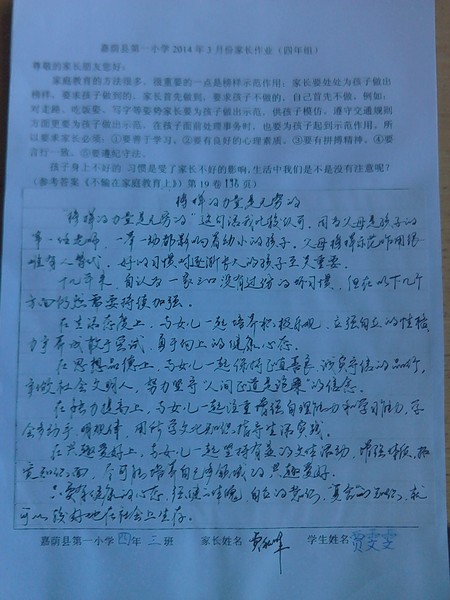 嘉荫县第一小学 2014 年 3 月份家长作业（四年组）
尊敬的家长朋友您好：
家庭教育的方法很多，很重要的一点是榜样示范作用，家长要处处为孩子做出
榜样。要求孩子做到的，家长首先做到，要求孩子不做的，自己首先不做。例如，
对走路、吃饭姿、写字等姿势家长要为孩子做出示范，供孩子模仿。遵守交通规则
方面更要为孩子做出示范，在孩子面前处理事务时，也要为孩子起到示范作用。所
以要求家长必须：①要善于学习。②要有良好的心理素质。③要有拼搏精神。④要
言行一致。⑤要遵纪守法。
孩子身上不好的 习惯是受了家长不好的影响,生活中我们是不是没有注意呢？
（参考答案《不输在家庭教育上》）第 19 卷 138 页）
榜样的力量是无穷的
"榜样的力量是无穷的"这句话我比较认可，因为父母是孩子的
第一任老师，一举一动都影响着幼小的孩子，父母榜样示范作用很
难有人替代，好的习惯对逐渐长大的孩子至关重要。
十几年来，自认为一家三口没有过份的坏习惯，但在以下几个
方面仍然需要持续加强。
在生活态度上，与女儿一起培养积极乐观、立强自立的性格，
力争养成敢于尝试、勇于向上的健康心态。
在思想品德上，与女儿一起保持正直善良、诚实守信的品行，
争做社会文明人，努力坚守"人间正道是沧桑"的信念。
在能力提高上，与女儿一起注重增强自理能力和学习能力，学
会多动手、明规律，用所学文化知识指导生活实践。
在兴趣爱好上，与女儿一起坚持有益的文体活动，增强体质，拓
宽知识面，尽可能培养自己多领域的兴趣爱好。
只要有健康的心态，强健的体魄，自在的 真会的知识，就
可以较好地在社会上生存。
嘉荫县第一小学 四 年 三 班 家长姓名 学生姓名 贾雯雯